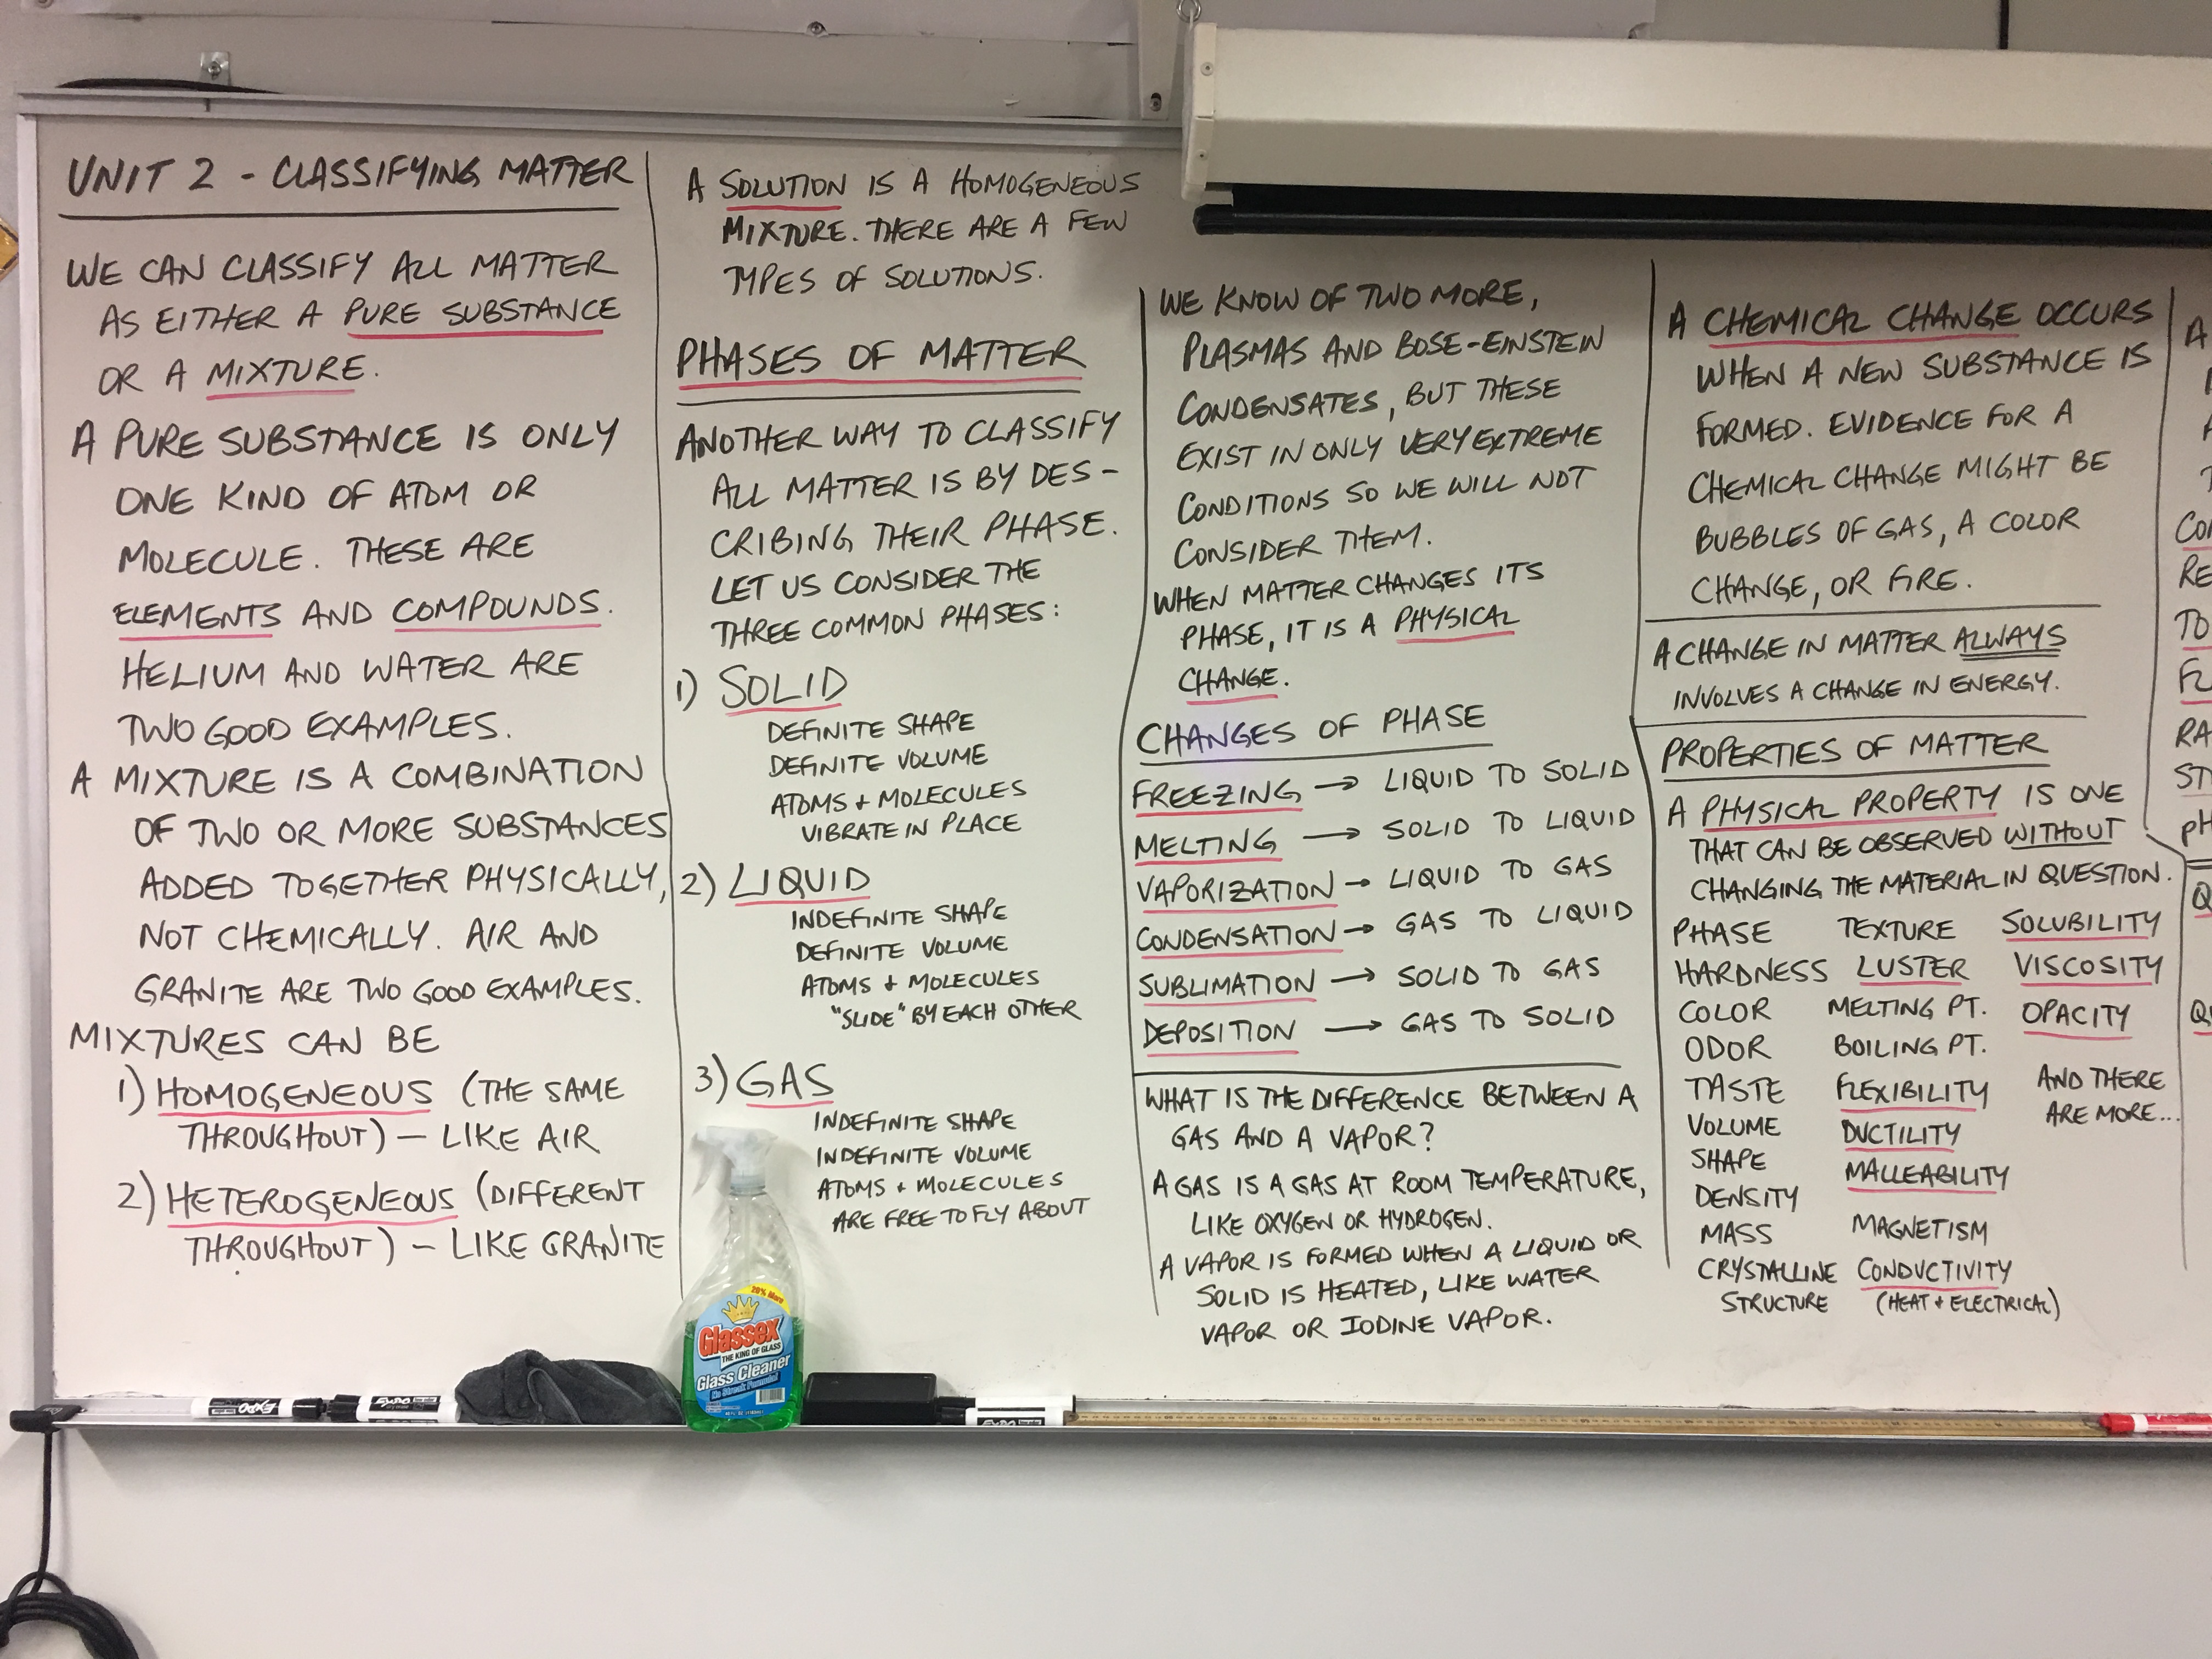 UNIT 2 - CLASSIFYING MATTER
WE CAN CLASSIFY ALL MATTER
AS EITHER A PURE SUBSTANCE
OR A MIXTURE.
A PURE SUBSTANCE IS ONLY
ONE KIND OF ATOM OR
MOLECULE. THESE ARE
ELEMENTS AND COMPOUNDS.
HELIUM AND WATER ARE
TWO GOOD EXAMPLES.
A MIXTURE IS A COMBINATION
OF TWO OR MORE SUBSTANCES
ADDED TOGETHER PHYSICALLY,
NOT CHEMICALLY. AIR AND
GRANITE ARE TWO GOOD EXAMPLES.
MIXTURES CAN BE
1) HOMOGENEOUS (THE SAME
THROUGHOUT) — LIKE AIR
2) HETEROGENEOUS (DIFFERENT
THROUGHOUT) — LIKE GRANITE
A SOLUTION IS A HOMOGENEOUS
MIXTURE. THERE ARE A FEW
TYPES OF SOLUTIONS.
PHASES OF MATTER
ANOTHER WAY TO CLASSIFY
ALL MATTER IS BY DES-
CRIBING THEIR PHASE.
LET US CONSIDER THE
THREE COMMON PHASES:
1) SOLID
DEFINITE SHAPE
DEFINITE VOLUME
ATOMS + MOLECULES
VIBRATE IN PLACE
2) LIQUID
INDEFINITE SHAPE
DEFINITE VOLUME
ATOMS + MOLECULES
"SLIDE" BY EACH OTHER
3) GAS
INDEFINITE SHAPE
INDEFINITE VOLUME
ATOMS + MOLECULES
ARE FREE TO FLY ABOUT
WE KNOW OF TWO MORE,
PLASMAS AND BOSE-EINSTEIN
CONDENSATES, BUT THESE
EXIST IN ONLY VERY EXTREME
CONDITIONS SO WE WILL NOT
CONSIDER THEM.
WHEN MATTER CHANGES ITS
PHASE, IT IS A PHYSICAL
CHANGE.
CHANGES OF PHASE
FREEZING → LIQUID TO SOLID
MELTING → SOLID TO LIQUID
VAPORIZATION → LIQUID TO GAS
CONDENSATION → GAS TO LIQUID
SUBLIMATION → SOLID TO GAS
DEPOSITION → GAS TO SOLID
WHAT IS THE DIFFERENCE BETWEEN A
GAS AND A VAPOR?
A GAS IS A GAS AT ROOM TEMPERATURE,
LIKE OXYGEN OR HYDROGEN.
A VAPOR IS FORMED WHEN A LIQUID OR
SOLID IS HEATED, LIKE WATER
VAPOR OR IODINE VAPOR.
A CHEMICAL CHANGE OCCURS
WHEN A NEW SUBSTANCE IS
FORMED. EVIDENCE FOR A
CHEMICAL CHANGE MIGHT BE
BUBBLES OF GAS, A COLOR
CHANGE, OR FIRE.
A CHANGE IN MATTER ALWAYS
INVOLVES A CHANGE IN ENERGY.
PROPERTIES OF MATTER
A PHYSICAL PROPERTY IS ONE
THAT CAN BE OBSERVED WITHOUT
CHANGING THE MATERIAL IN QUESTION.
PHASE TEXTURE SOLUBILITY
HARDNESS LUSTER VISCOSITY
COLOR MELTING PT. OPACITY
ODOR BOILING PT.
TASTE FLEXIBILITY AND THERE
VOLUME DUCTILITY ARE MORE...
SHAPE MALLEABILITY
DENSITY
MASS MAGNETISM
CRYSTALLINE CONDUCTIVITY
STRUCTURE (HEAT + ELECTRICAL)
A
RE
TO
FL
RA
ST
PH
20% More
Glassex
THE KING OF GLASS
Glass Cleaner
No Streak Formula!
EXPO
EXPO
EXPO